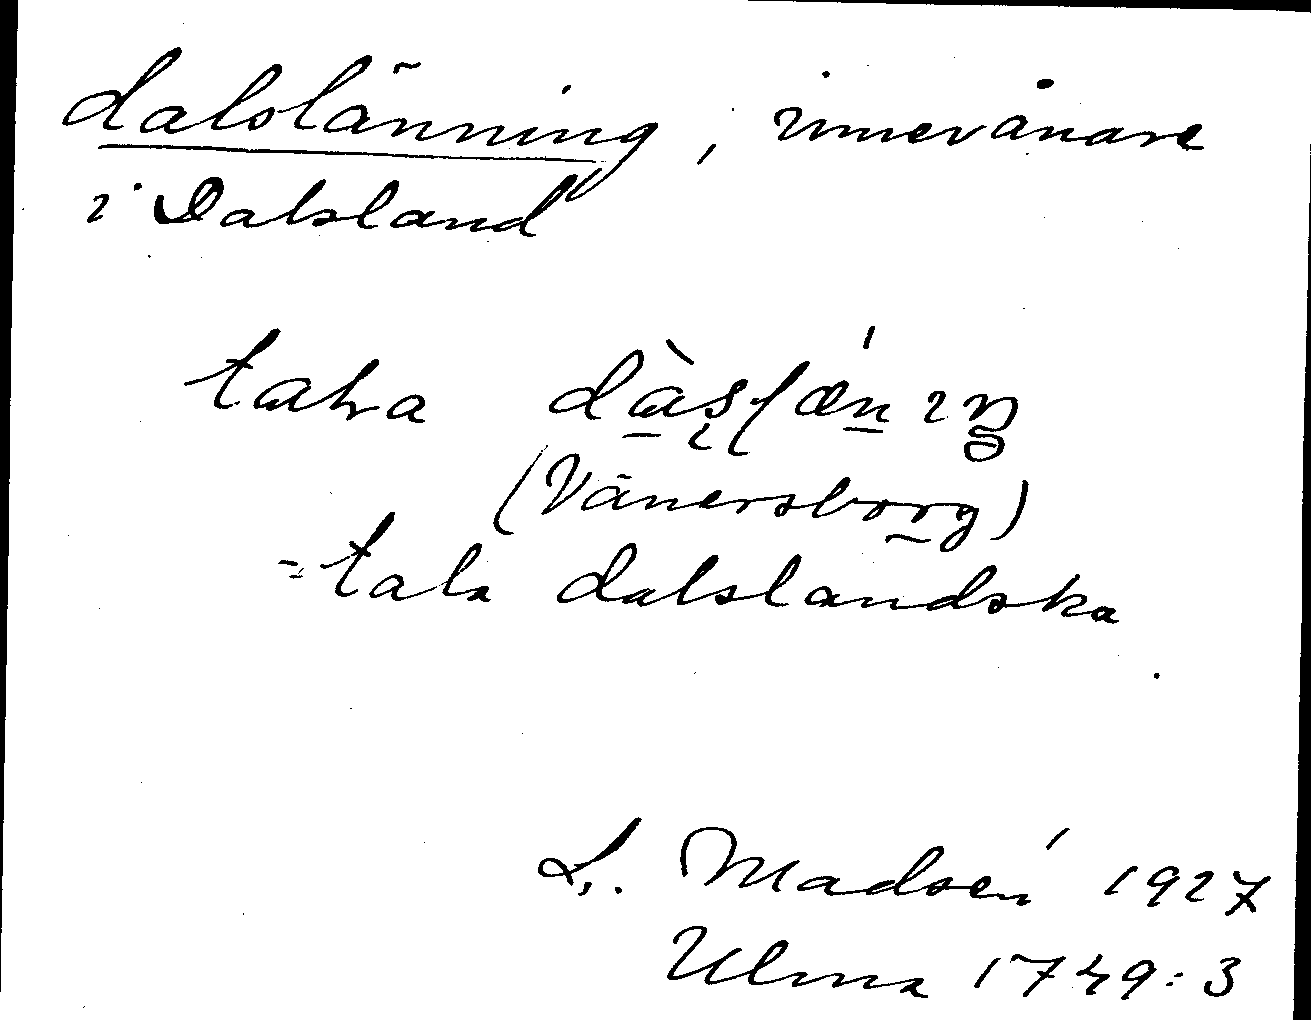 dalslänning, innevånare
i Dalsland
tala dàs̨ʃæ̲n̲ıŋ
(Vänersborg)
= tala dalslandska
L. Madsén 1927
Ulma 1749:3